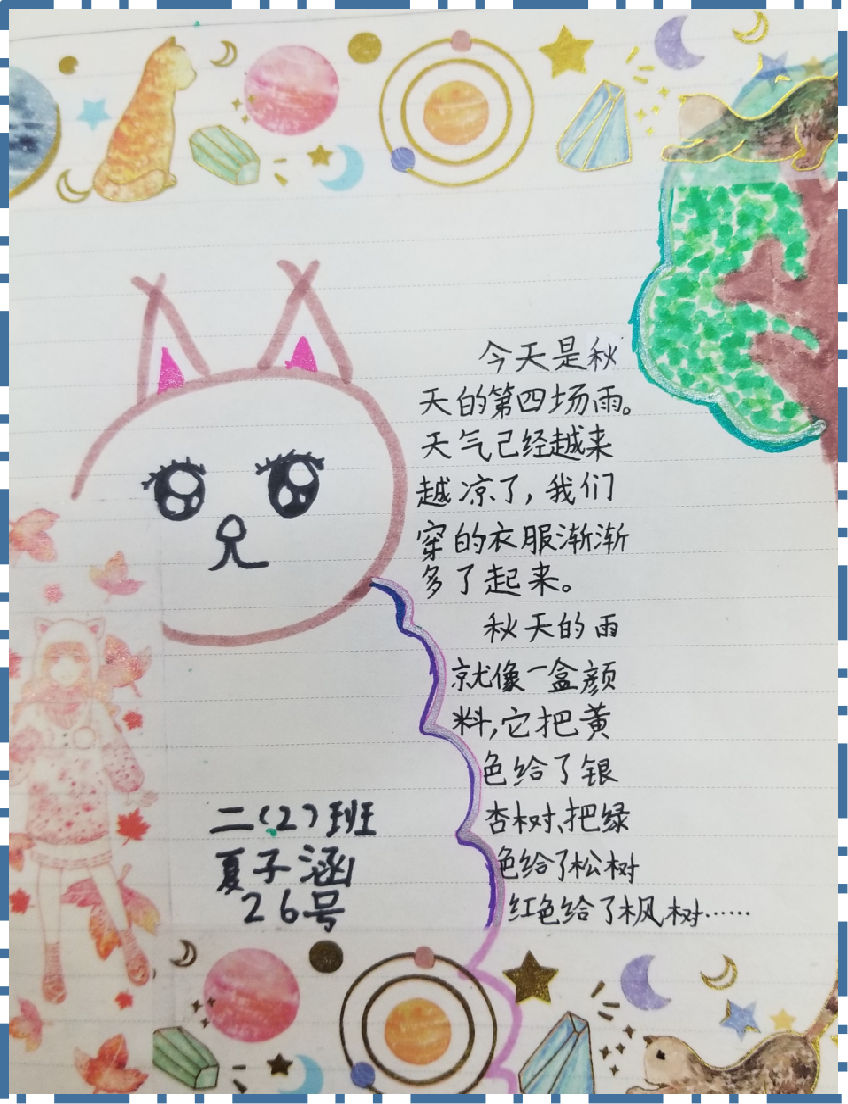 今天是秋
天的第四场雨。
天气已经越来
越凉了,我们
穿的衣服渐渐
多了起来。
秋天的雨
就像一盒颜
料,它把黄
色给了银
杏树、把绿
色给了松树
红色给了枫树……
二(2)班
夏子涵
26号